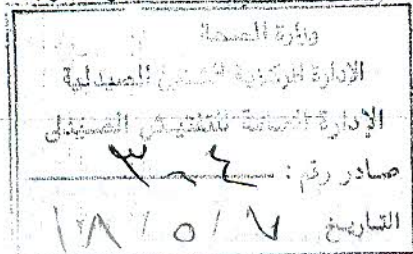 وزارة الصحة
الإدارة المركزية للشئون الصيدلية
الإدارة العامة للتفتيش الصيدلى
صادر رقم : ٣٠٤
التاريخ ٧ / ٥ / ١٨